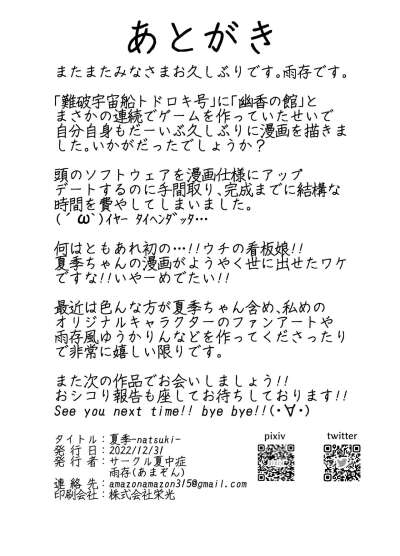 あとがき
またまたみなさまお久しぶりです。雨存です。
「難破宇宙船トドロキ号」に「幽香の館」と
まさかの連続でゲームを作っていたせいで
自分自身もだーいぶ久しぶりに漫画を描きま
した。いかがだったでしょうか？
頭のソフトウェアを漫画仕様にアップ
デートするのに手間取り、完成までに結構な
時間を費やしてしまいました。
(´ω`)ｲﾔｰ ﾀｲﾍﾝﾀﾞｯﾀ…
何はともあれ初の…!!ウチの看板娘!!
夏季ちゃんの漫画がようやく世に出せたワケ
ですな!!いやーめでたい!!
最近は色んな方が夏季ちゃん含め、私めの
オリジナルキャラクターのファンアートや
雨存風ゆうかりんなどを作ってくださったり
で非常に嬉しい限りです。
また次の作品でお会いしましょう!!
おシコり報告も座してお待ちしております!!
See you next time!! bye bye!!(・∀・)
タイトル：夏季-natsuki-
発行日：2022/12/31
発行者：サークル夏中症
雨存(あまぞん)
連絡先：amazonamazon315@gmail.com
印刷会社：株式会社栄光
pixiv
twitter